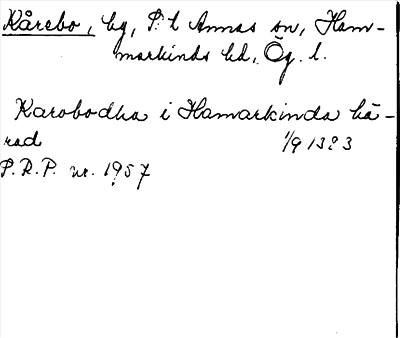 Kårebo, by, S:t Annas sn, Ham-
markinds hd, Ög. l.
Karobodha i Hamarkinda hä-
rad 1/9 1323
P.R.P. nr. 1957